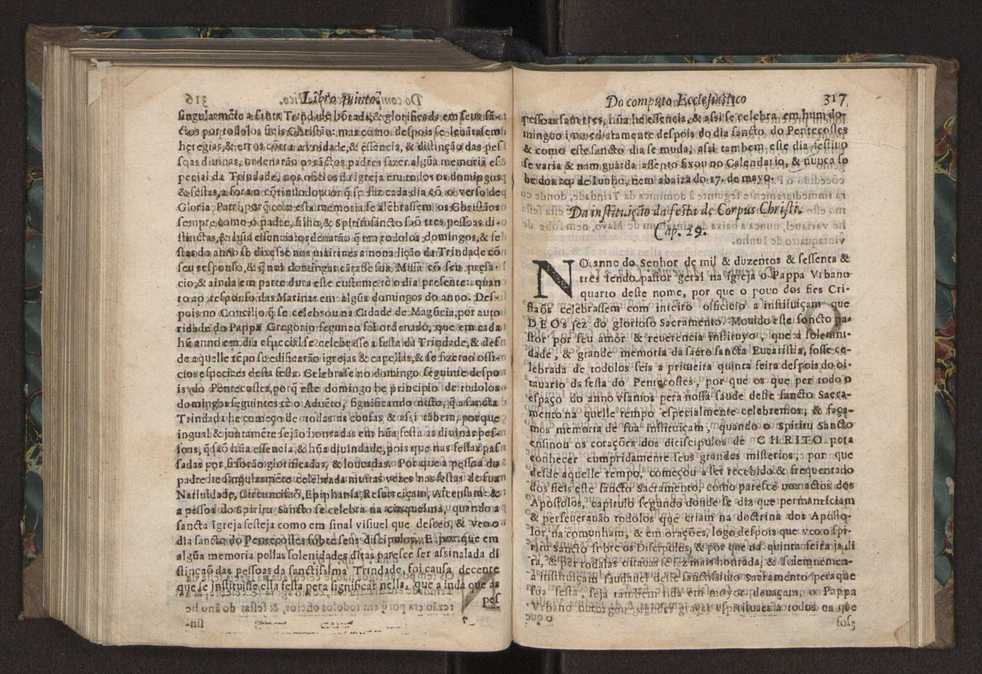 316
Libro quinto,
singularmẽto a Sancta Trindade honrada, & glorificada em seus sã-
ctos por todolos fieis Christãos: mas como despois se leuãtasem
heregias, & erros cõtra a trindade, & essencia, & distinção das pes-
soas diuinas, ordenarão os sãctos padres fazer algũa memoria es-
pecial da Trindade, nos officios da igreja em todos os domingos
& festas, a foram cõtinuãdo o que se faz cada dia cõ o verso de
Gloria Patri, por que com esta memoria se alẽbrassem os Christãos
sempre como o padre, filho, & Spiritu sancto são tres pessoas di-
stinctas, & hũa essencia
tas do anno se dixesse nas matinas a nona lição da Trindade cõ
seu responso, & q̃ nos domingos cãtasse sua Missa cõ seu prefa-
cio, & ainda em parte dura este custume tẽ o dia presente: quan
to ao responso das Matinas em algũs domingos do anno. Des-
pois no Concilio q̃ se celebrou na Cidade de Magũcia, por auto
ridade do Pappa Gregorio segundo foi ordenado, que em cada
hũ anno em dia especial se celebrasse a festa da Trindade, & des
de aquelle tẽpo se edificarão igrejas & capellas, & se fizerão offi-
cios especiães desta festa. Celebrase no domingo seguinte despo
is do Pentecostes, porq̃ este domingo he principio de todolos
domingos seguintes tẽ o Aduẽto, significando nisto, q̃ a sancta
Trindade he começo de todas as cousas & assi tãbem, porque
ingual & juntamẽte sejão honradas em hũa festa as diuinas pes-
soas, q̃ são hũa essencia, & hũa diuindade, pois que nas festas pas
sadas por si são glorificadas, & louuadas. Porque a pessoa do
padre he singularmẽte celebrada muitas vezes nas festas de sua
Natiuidade, Circuncisaõ, Epiphania, Resureiçam, Ascensam &
a pessoa do Spiritu sancto se celebra na cinquesma, quando a
sancta igreja festeja como em sinal visiuel que desceo, & veo o
dia sancto do Pentecostes sobre seus discipulos. E porque em
algũa memoria pellas solenidades ditas paresce ser assinalada di
stinção das pessoas da sanctissima Trindade, foi causa decente
que se instituisse esta festa pera significar nella, que ainda que as
pes
Do computo Ecclesiastico
317
pessoas sam tres, hũa he essencia, & assi se celebra em hum do-
mingo immediatamente despois do dia sancto do Pentecostes
& como este sancto dia se muda, assi tambem este dia festiuo
se varia & nam guarda assento fixo no Calendario, & nunca so
be dos 20. de Iunho, nem abaixa do 17. de mayo.
Da instituição da festa de Corpus Christi.
Cap. 29.
NO anno do Senhor de mil & duzentos & sessenta &
tres sendo pastor geral na igreja o Pappa Vrbano
quarto deste nome, por que o pouo dos fies Cri-
stãos celebrassem com inteiro officio a instituiçam que
DEOS fez do glorioso Sacramento. Mouido este sancto pa-
stor por seu amor & reuerencia instituyo, que a solemni-
dade, & grande memoria da sacro sancta Eucaristia, fosse ce-
lebrada de todolos fieis a primeira quinta feira despois do oi-
tauario da festa do Pentecostes, por que os que per todo o
espaço do anno vsamos pera nossa saude deste sancto Sacra-
mento na quelle tempo especialmente celebremos, & faça-
mos memoria de sua instituiçam, quando o Spiritu Sancto
ensinou os corações dos discipulos de CHRITO pera
conhecer cumpridamente seus grandes misterios; por que
desde aquelle tempo, começou a ser recebido & frequentado
dos fieis este sancto Sacramento, como paresce nos actos dos
Apostolos, capitulo segundo donde se diz que permaneciam
& perseuerauão todolos que criam na doctrina dos Aposto-
los, na comunham, & em orações, logo despois que veo o Spi-
ritu Sancto sobre os Discipulos, & por que na quinta feira ja di
ta, & per todalas oitauas se fez mais honrada, & solemnemen-
a instituiçam saudauel deste sanctissimo Sacramento pera que
sua festa, seja tambem tida em mayor deuaçam, o Pappa
Vrbano outorgou graças espirituaes a todos os que